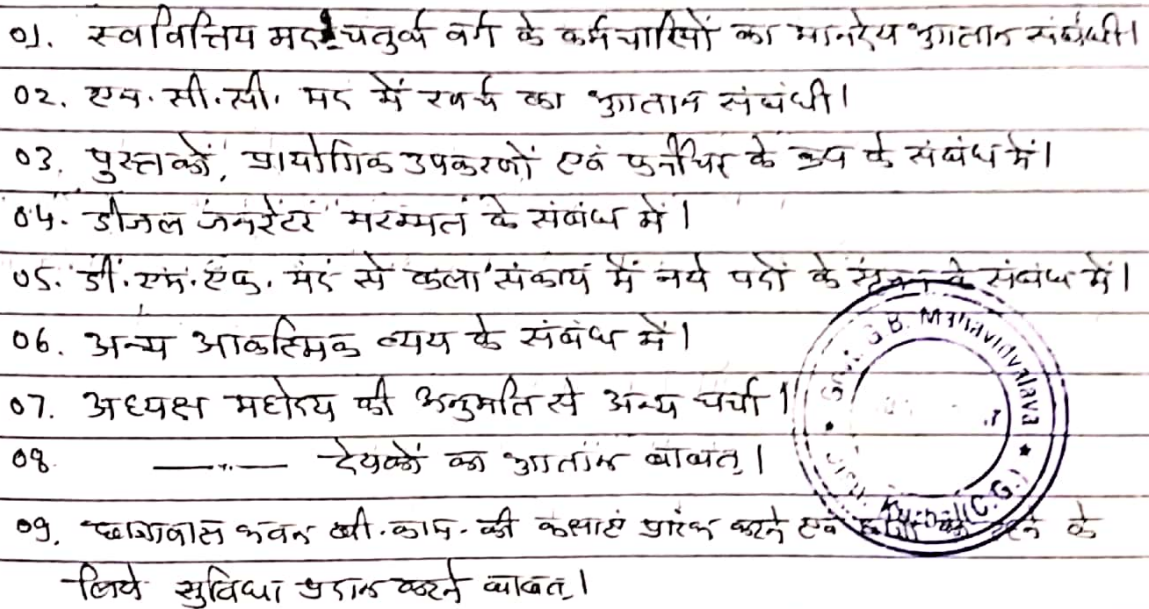 01. स्ववित्तिय मद चतुर्थ वर्ग के कर्मचारियों का मानदेय भुगतान संबंधी।
02. एन.सी.सी. मद में खर्च का भुगतान संबंधी।
03. पुस्तकों, प्रायोगिक उपकरणों एवं फर्नीचर के क्रय के संबंध में।
04. डीजल जनरेटर मरम्मत के संबंध में।
05. डी.एम.एफ. मद से कला संकाय में नये पदों के सृजन के संबंध में।
06. अन्य आकस्मिक व्यय के संबंध में।
07. अध्यक्ष महोदय की अनुमति से अन्य चर्चा।
08. —〃— देयकों का भुगतान बाबत्।
09. छात्रावास भवन बी.काम. की कक्षाएं प्रारंभ करने एवं के
लिये सुविधा प्रदान करने बाबत्।
G.B. Mahavidyalaya
(C.G.)